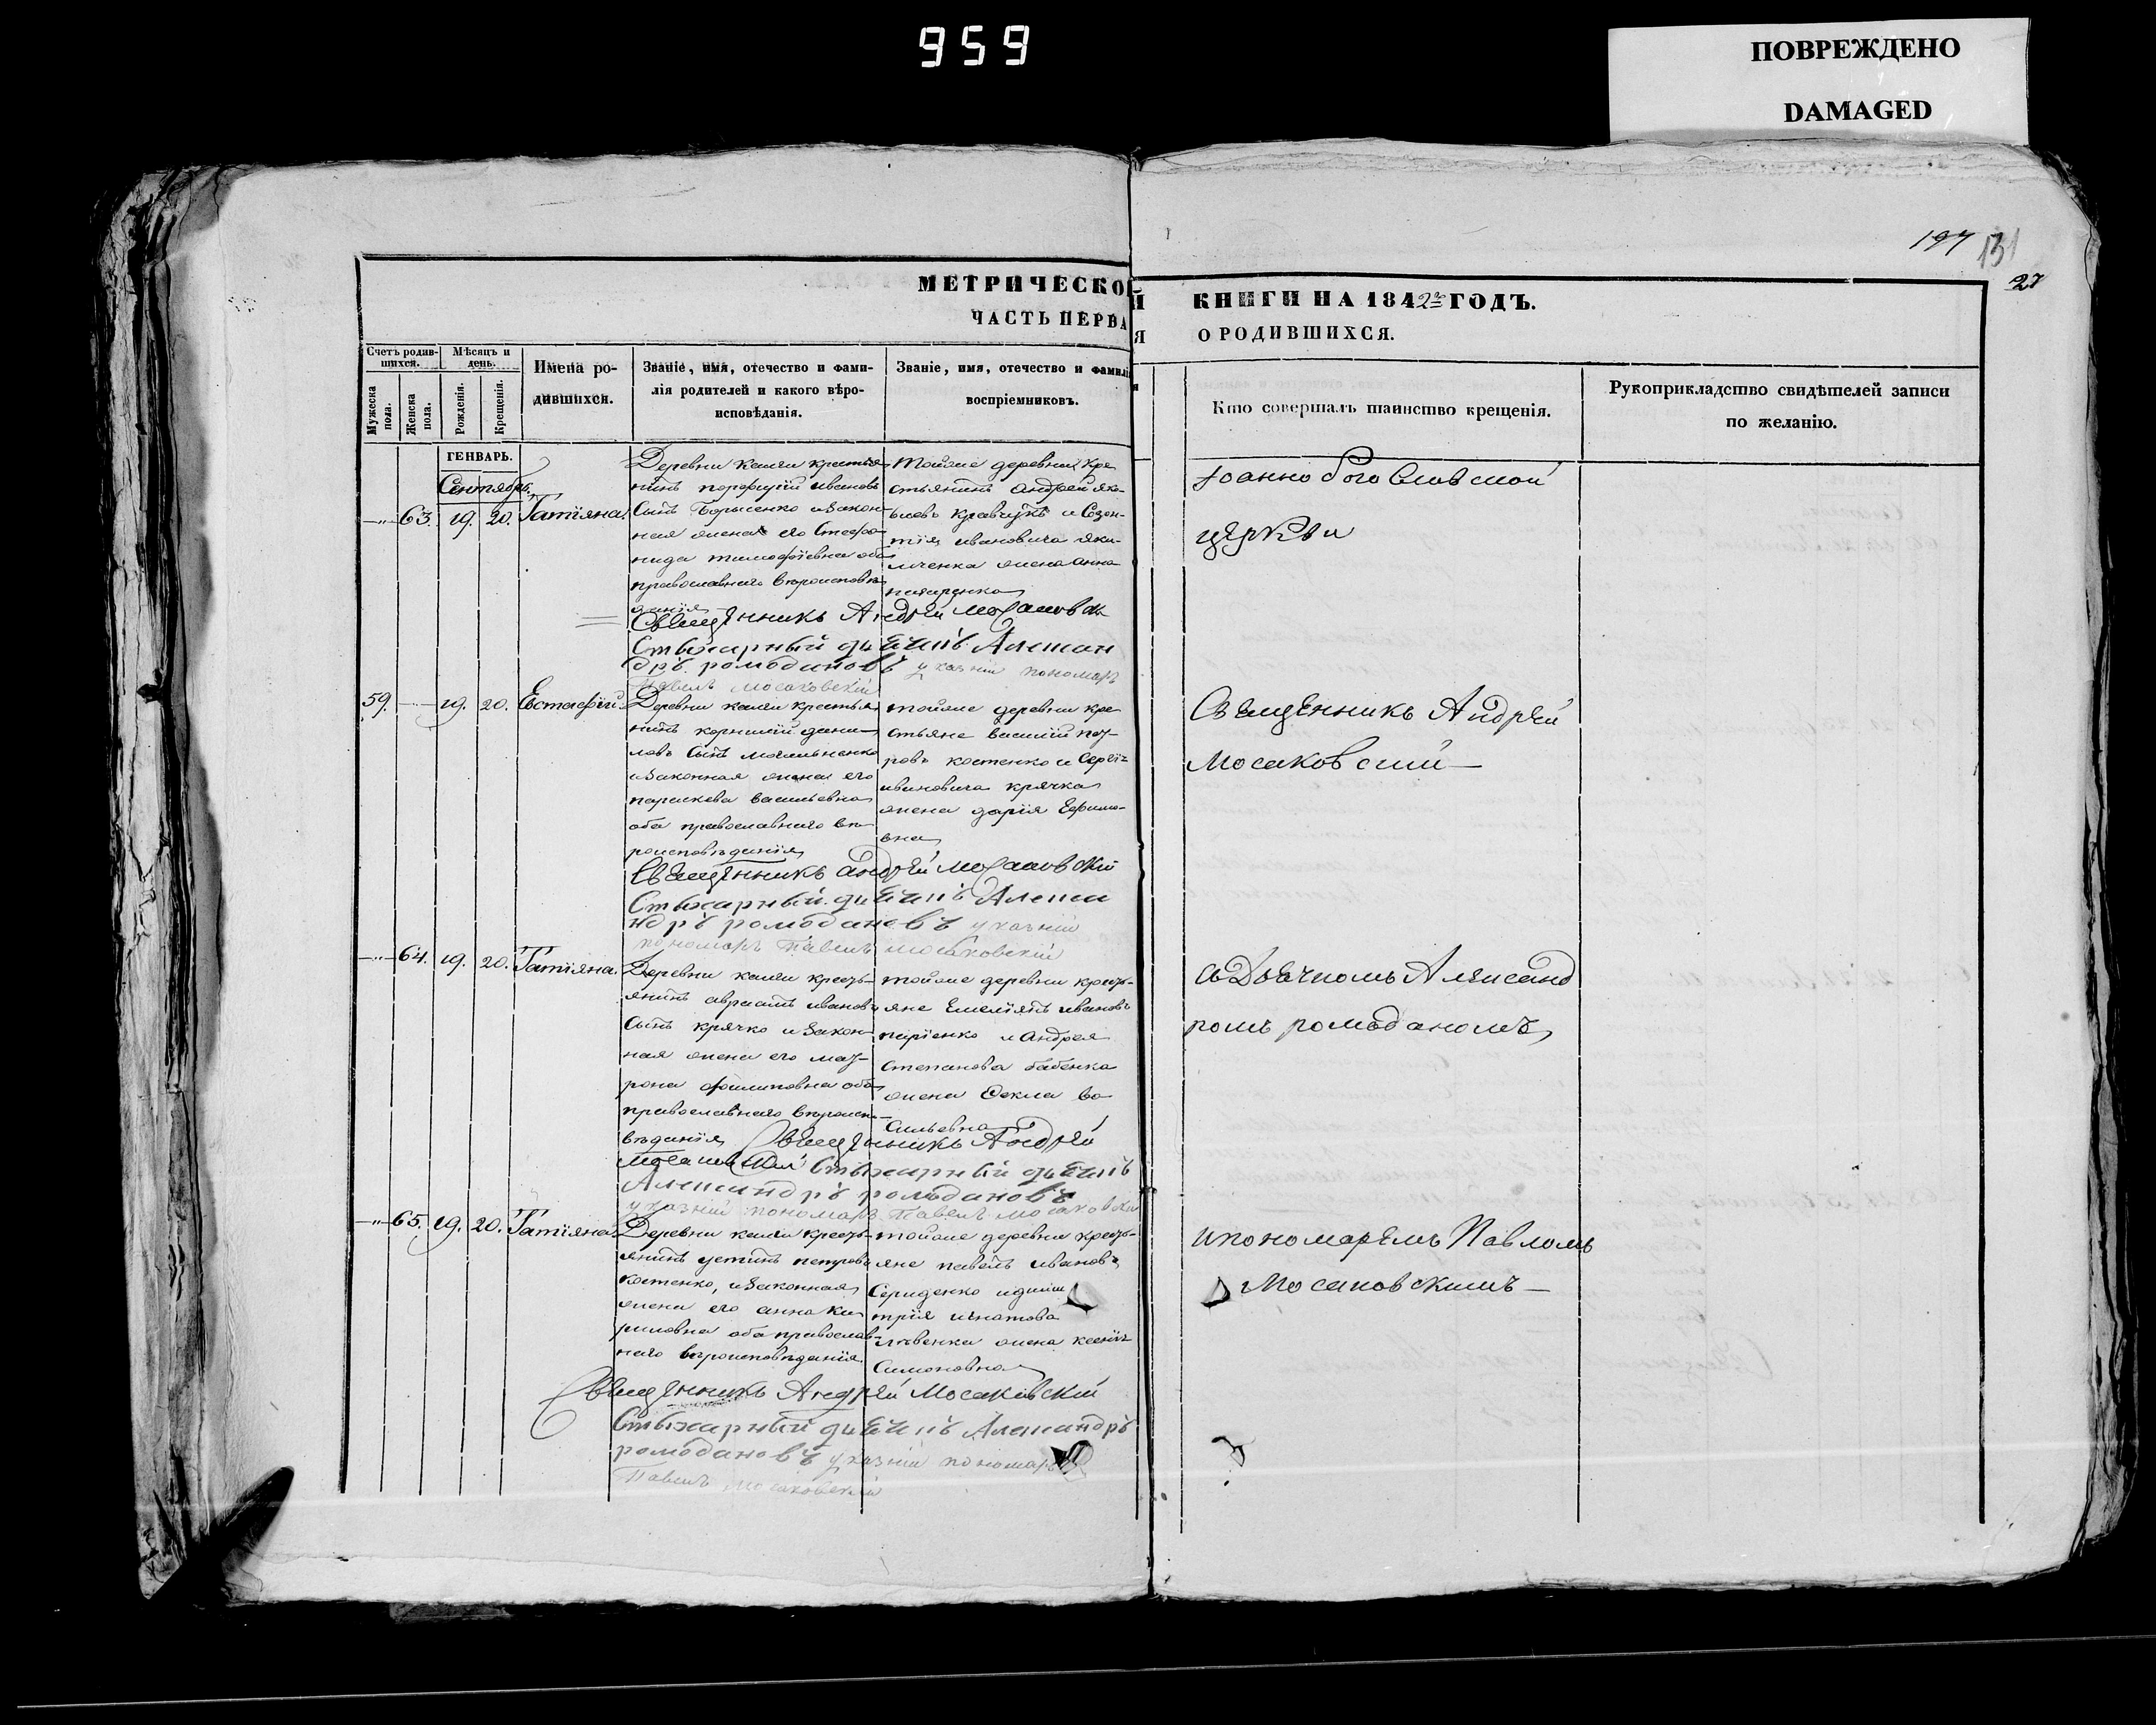 959
ПОВРЕЖДЕНО
DAMAGED
197 131
27
МЕТРИЧЕСКОЙ КНИГИ НА 1842й ГОДЪ.
ЧАСТЬ ПЕРВАЯ О РОДИВШИХСЯ.
Счетъ родившихся.
Мужеска пола.
Женска пола.
Мѣсяцъ и день.
Рожденія.
Крещенія.
Имена родившихся.
Званіе, имя, отечество и фамилія родителей и какого вѣроисповѣданія.
Званіе, имя, отечество и фамилія воспріемниковъ.
Кто совершалъ таинство крещенія.
Рукоприкладство свидѣтелей записи по желанію.
ГЕНВАРЬ.
Сентябрь.
—"— 63. 19. 20. Татіяна.
Деревни крестья
нинъ порфирій ивановъ
Сынъ Борисенко изакон
ная жена его Стефа
нида тимофѣевна оба
православнаго вѣроисповѣ
данія
тойже деревни кре
стьянинъ андрей яко
влевъ кравчукъ и
ивановича
жена анна
Священникъ Андрей Мосаковскій
Стыхарный дьячикъ Алексан
дръ ромодановъ указній пономарь
Павелъ Мосаковскій
59. — 19. 20. Евстафій.
Деревни крестья
нинъ корнилій дани
ловъ Сынъ могильниченко
изаконная жена его
параскева васильевна
оба православнаго вѣ
роисповѣданія
тойже деревни кре
стьяне василій пет
ровъ костенко и Сергѣ
ивановича крячка
жена дарія Ефимо
вна
Священникъ андрей Мосаковскій
Стыхарный дьячикъ Алекса
ндръ ромодановъ указній
пономарь Павелъ Мосаковскій
—"— 64. 19. 20. Татіяна.
Деревни крестъ
янинъ авраамъ ивановъ
Сынъ крячко изакон
ная жена его мат
рона филиповна оба
православнаго вѣроиспо
вѣданія
тойже деревни крестъ
яне Емеліянъ ивановъ
и Андрея
Степанова бабенка
жена Ѳекла ва
сильевна
Священникъ Андрей
Мосаковскій Стыхарный дьячикъ
Александръ ромодановъ
указній пономарь Павелъ Мосаковскій
—"— 65. 19. 20. Татіяна.
Деревни крестъ
янинъ устинъ петровъ
костенко, изаконная
жена его анна ки
риловна оба православ
наго вѣроисповѣданія.
тойже деревни крестъ
яне павелъ ивановъ
Середенко идими
трія игнатова
жена ксенія
Симоновна
Священникъ Андрей Мосаковскій
Стыхарный дьячикъ Александръ
ромодановъ указній пономарь
Павелъ Мосаковскій
Іоанно Бого Словской
церкви
Священникъ Андрей
Мосаковский —
съ Дьячкомъ Александ
ромъ ромоданомъ
ипономаремъ Павломъ
Мосаковскимъ —